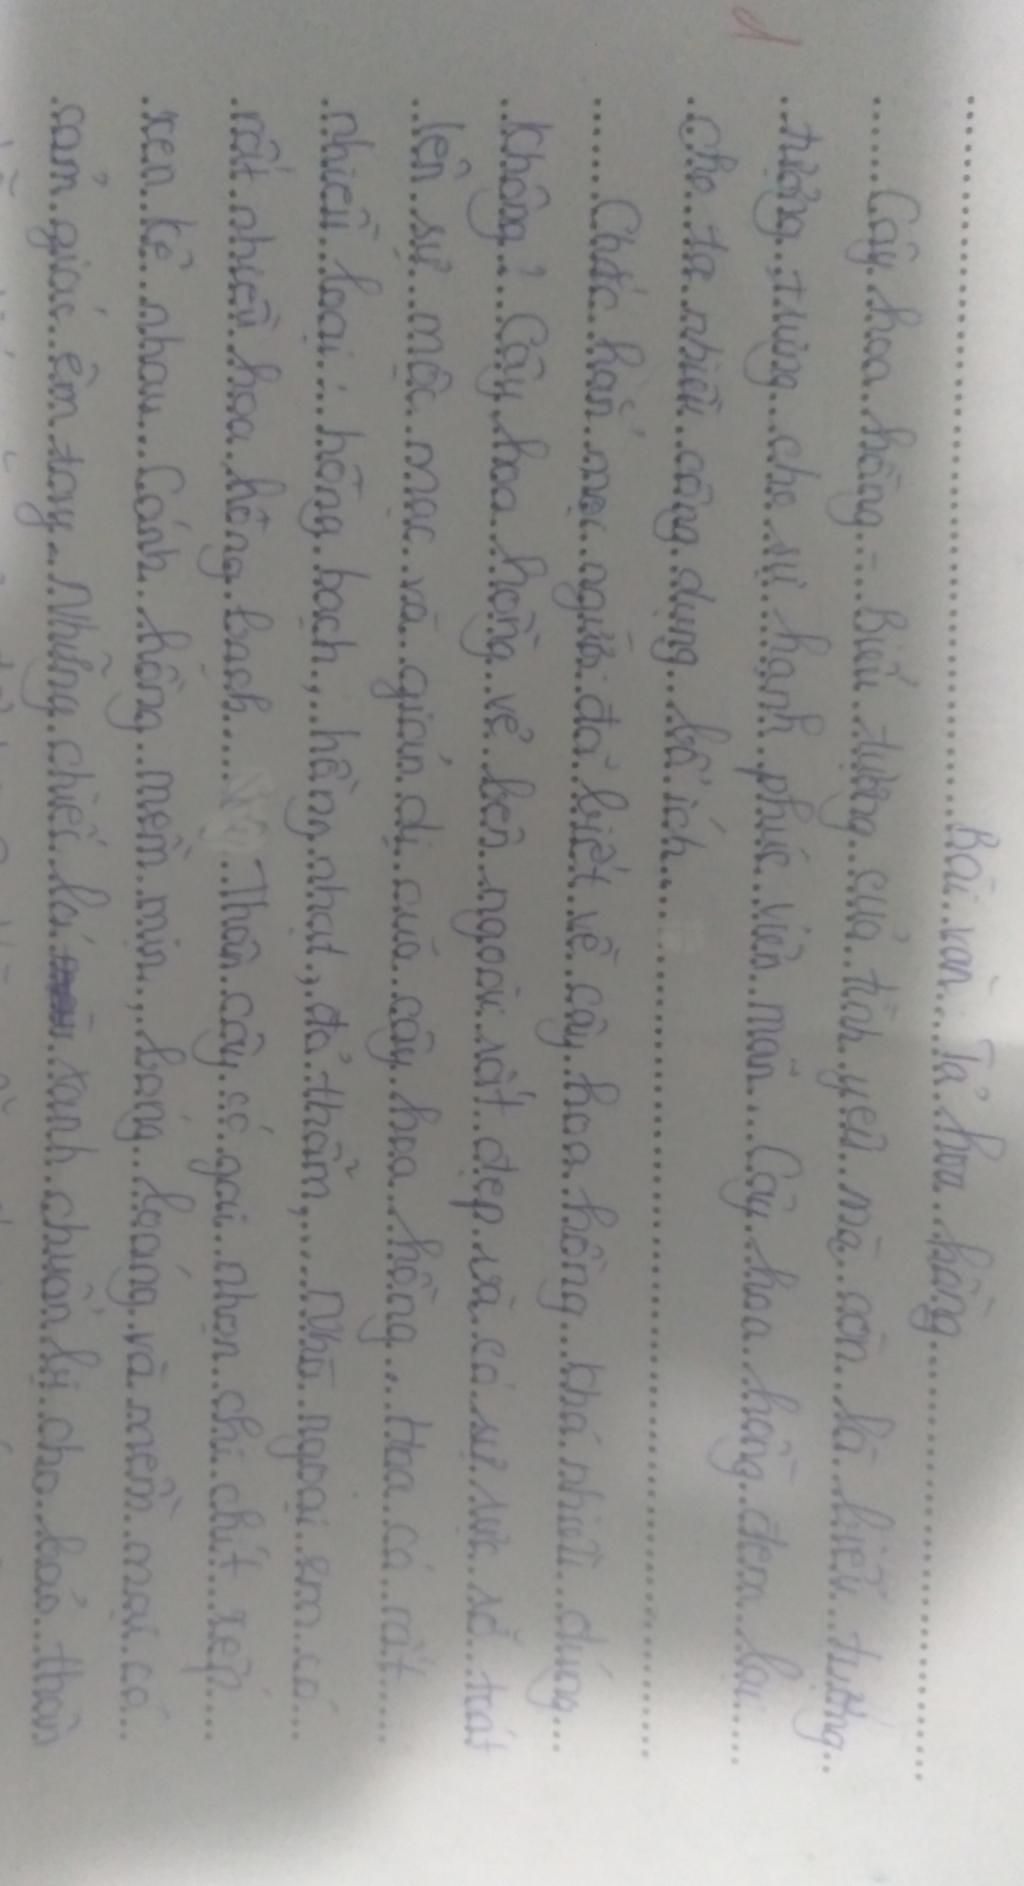 Bài văn Tả hoa hồng
Cây hoa hồng - Biểu tượng của tình yêu mà còn là biểu tượng
tượng trưng cho sự hạnh phúc viên mãn. Cây hoa hồng đem lại
cho ta nhiều công dụng bổ ích.
Chắc hẳn mọi người đã biết về cây hoa hồng khá nhiều đúng
không? Cây hoa hồng vẻ bên ngoài rất đẹp và có sự rực rỡ toát
lên sự mộc mạc và giản dị của cây hoa hồng. Hoa có rất
nhiều loại: hồng bạch, hồng nhạt, đỏ thẫm,... Nhà ngoại em có
rất nhiều hoa hồng bạch. Thân cây có gai nhọn chi chít xếp
xen kẽ nhau. Cánh hồng mềm mịn, bóng loáng và mềm mại có
cảm giác êm tay. Những chiếc lá xanh chuẩn bị cho bảo thân